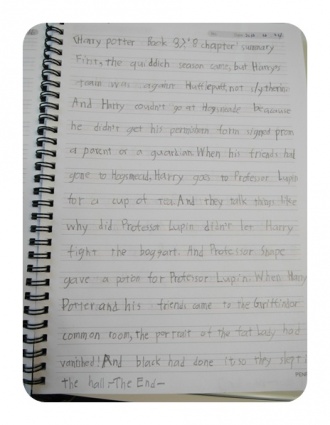 Harry potter Book 3, "8 chapter" summary
First, the quiddich season came, but Harry's
team was against Hufflepuff, not slytherin.
And Harry couldn't go at Hogsmeade because
he didn't get his permission form signed from
a parent or a guardian. When his friends had
gone to Hogsmead, Harry goes to Professor Lupin
for a cup of tea. And they talk things like
why did Professor Lupin didn't let Harry
fight the boggart. And Professor Snape
gave a potion for Professor Lupin. When Harry
Potter and his friends came to the Griffindor
common room, the portrait of the fat lady had
vanished! And black had done it so they slept in
the hall. ~The End~